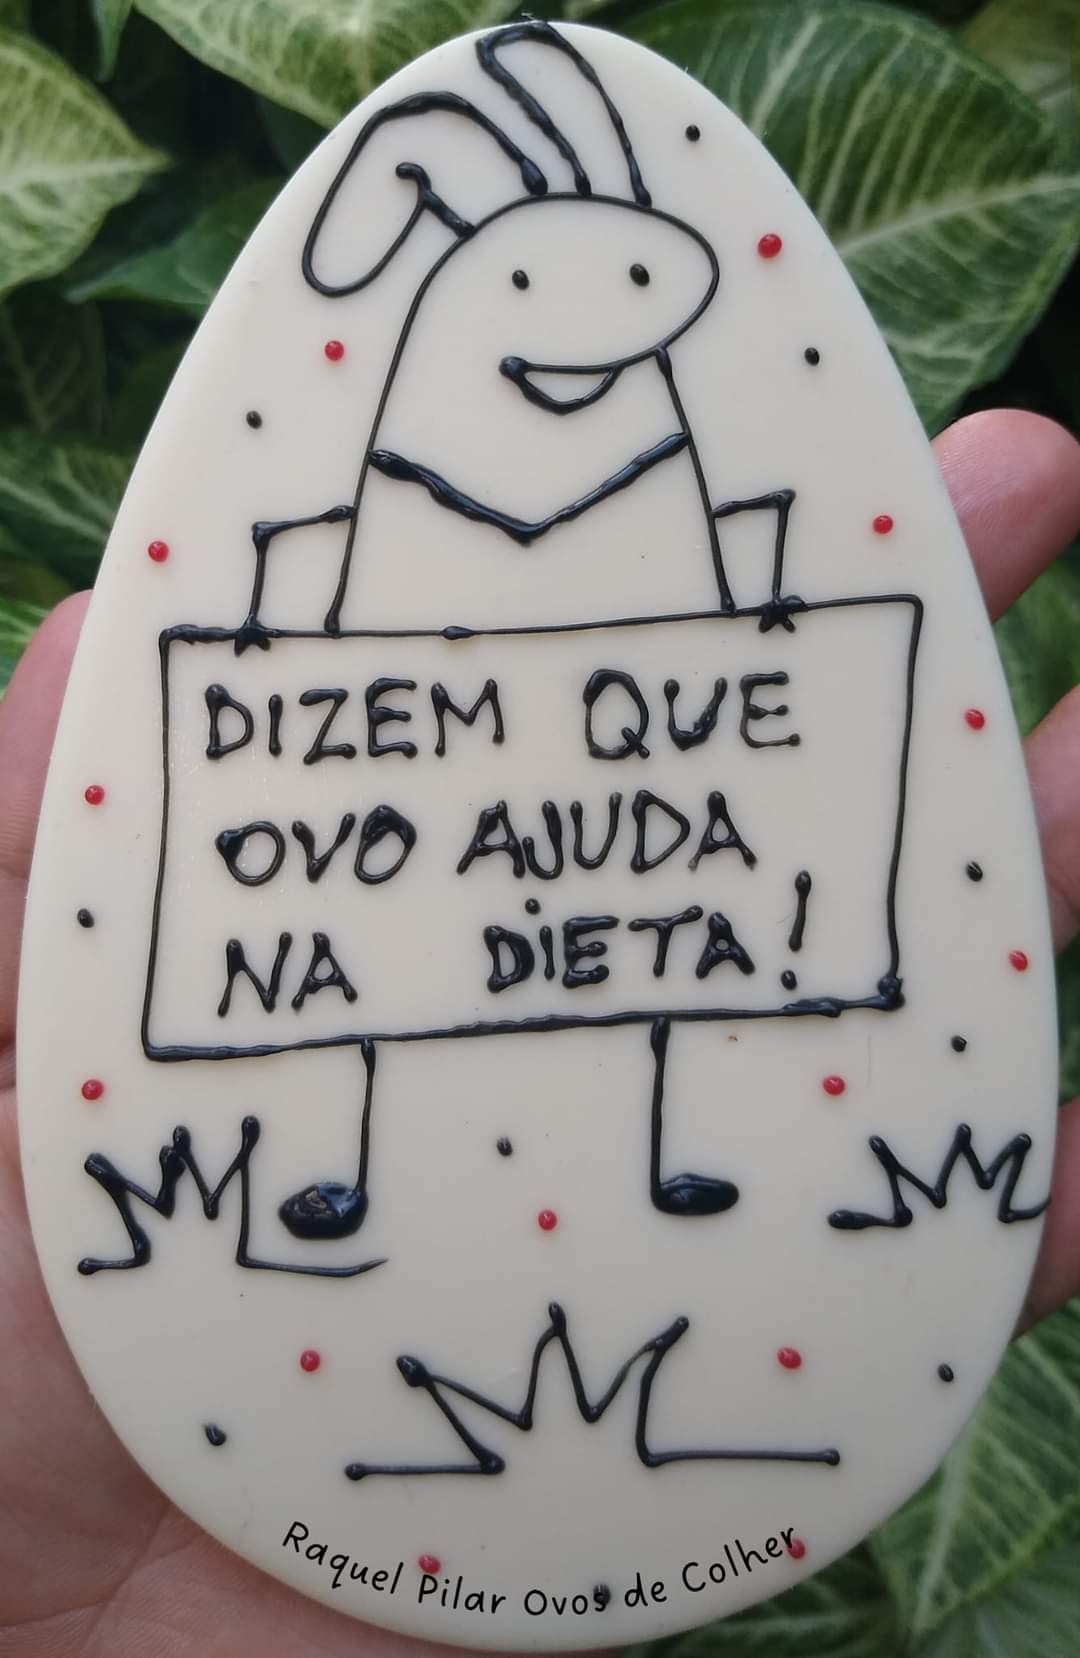 DIZEM QUE
OVO AJUDA
NA DIETA!
Raquel Pilar Ovos de Colher